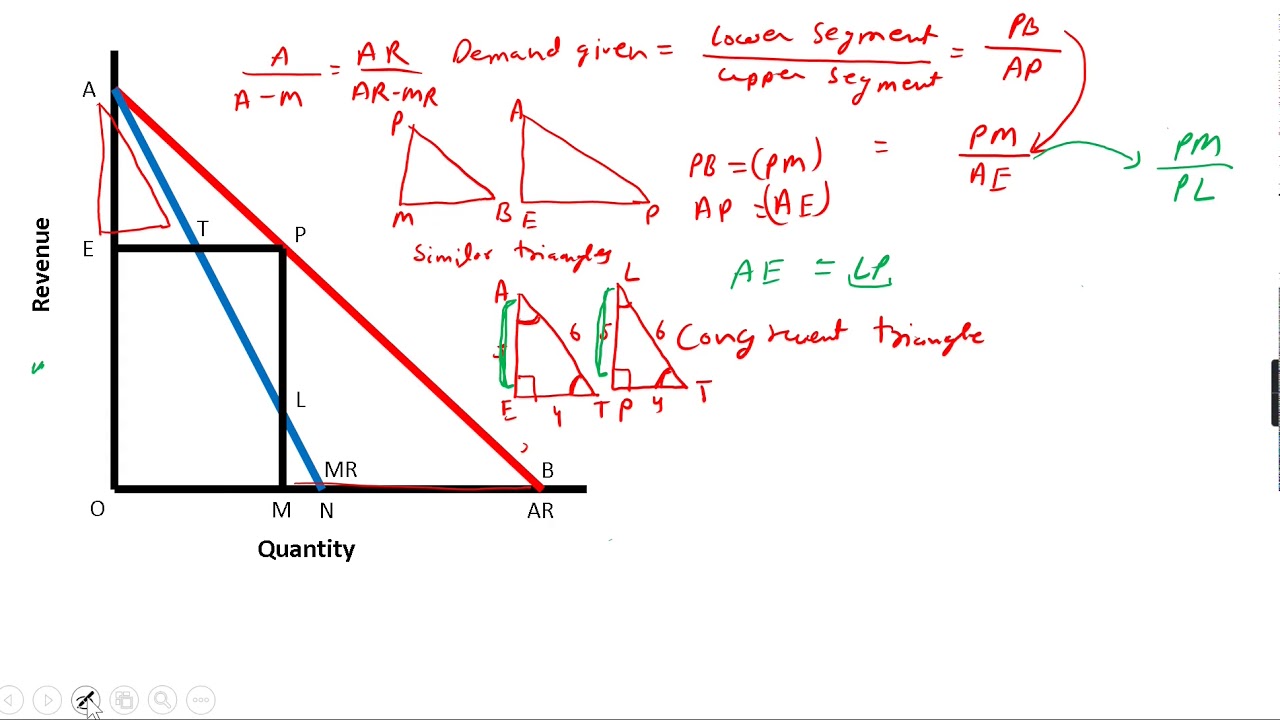 A / A-M = AR / AR-MR
Demand given = Lower Segment / upper Segment = PB / AP
= PM / AE
PM / PL
P
M
B
A
E
P
PB = (PM)
AP = (AE)
Similar triangles
AE = LP
A
6
E
4
T
L
5
6
P
4
T
Congruent triangle
A
E
T
P
L
MR
B
O
M
N
AR
Revenue
Quantity